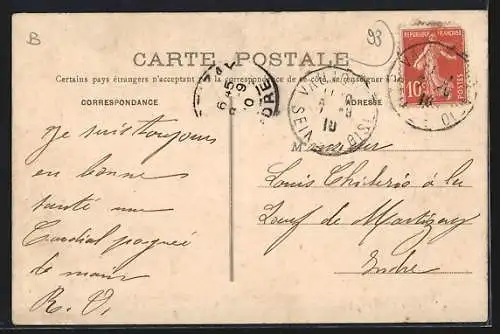 B
93
CARTE POSTALE
Certains pays étrangers n'acceptant pas la correspondance de ce côté, se renseigner à la
CORRESPONDANCE
ADRESSE
REPUBLIQUE FRANÇAISE
10
POSTES
Je suis toujours
en bonne
santé une
Cordial poignée
de main
R. O.
Monsieur
Louis à la
de Martizay
Indre